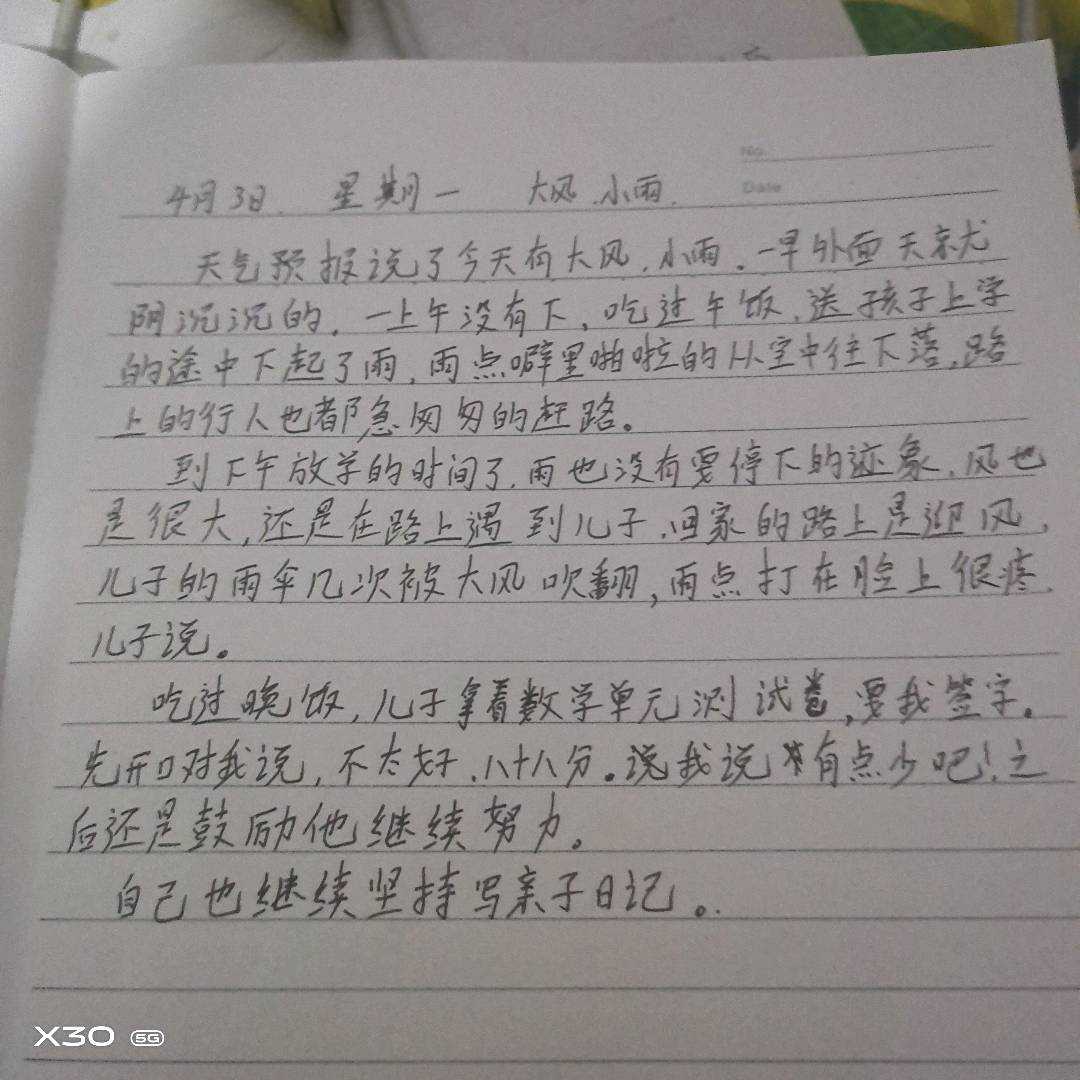 No
Date
4月3日. 星期一 大风.小雨.
天气预报说了今天有大风.小雨.一早外面天就尤
阴沉沉的,一上午没有下,吃过午饭,送孩子上学
的途中下起了雨,雨点噼里啪啦的从空中往下落,路
上的行人也都急匆匆的赶路。
到下午放学的时间了,雨也没有要停下的迹象,风也
是很大,还是在路上遇到儿子.回家的路上是迎风,
儿子的雨伞几次被大风吹翻,雨点打在脸上很疼.
儿子说。
吃过晚饭,儿子拿着数学单元测试卷,要我签字。
先开口对我说,不太好.八十八分。说我说有点少吧!之
后还是鼓励他继续努力。
自己也继续坚持写亲子日记。.
X30 5G